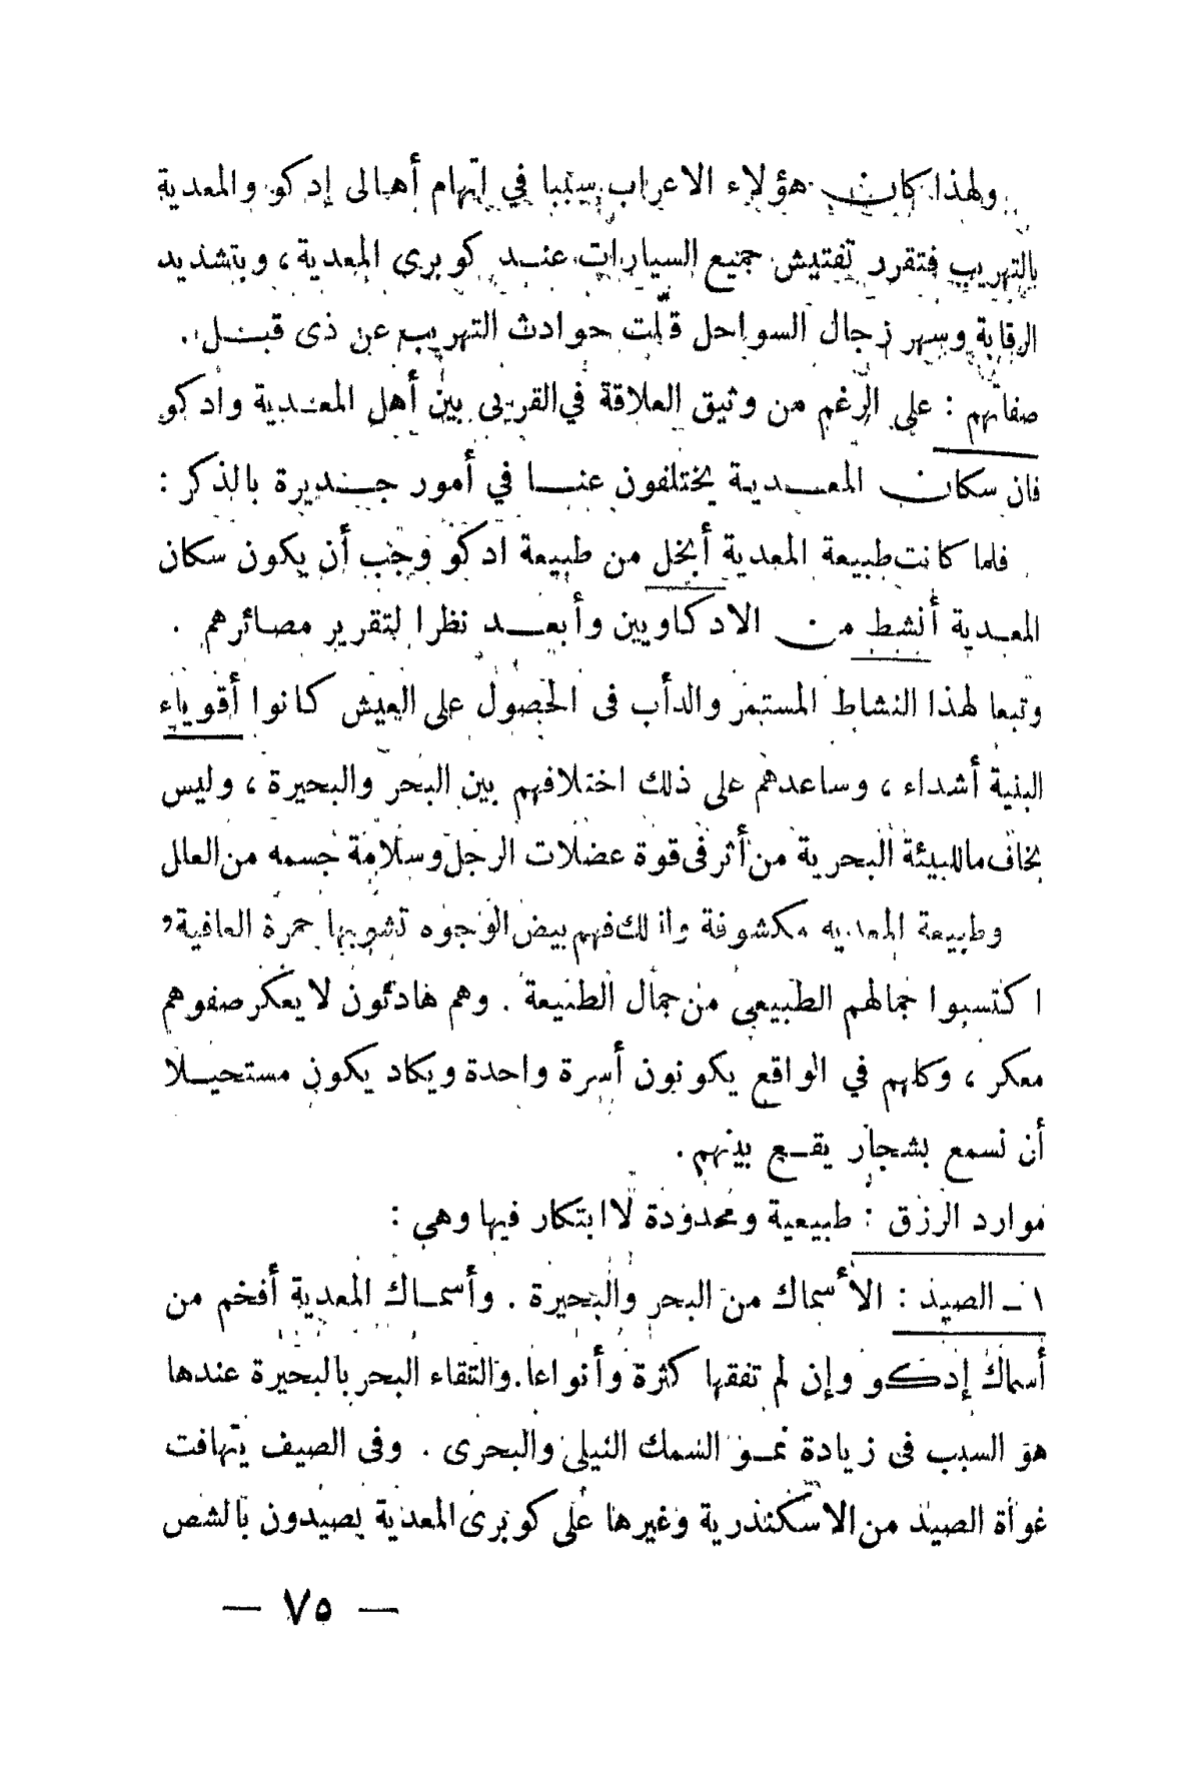 ولهذا كان هؤلاء الاعراب سببا في اتهام أهالى إدكو والمعدية
بالتهريب فتقرر تفتيش جميع السيارات عند كوبرى المعدية ، وبتشديد
الرقابة وسهر رجال السواحل قلّت حوادث التهريب عن ذى قبل .
صفاتهم : على الرغم من وثيق العلاقة في القربى بين أهل المعدية وأدكو
فان سكان المعدية يختلفون عنا في أمور جديرة بالذكر :
فلما كانت طبيعة المعدية أبخل من طبيعة ادكو وجب أن يكون سكان
المعدية أنشط من الادكاويين وأبعد نظرا لتقرير مصائرهم .
وتبعا لهذا النشاط المستمر والدأب فى الحصول على العيش كانوا أقوياء
البنية أشداء ، وساعدهم على ذلك اختلافهم بين البحر والبحيرة ، وليس
بخاف ماللبيئة البحرية من أثر فى قوة عضلات الرجل وسلامة جسمه من العلل
وطبيعة المعديه مكشوفة ولذلك فهم بيض الوجوه تشوبها حمرة العافية و
اكتسبوا جمالهم الطبيعى من جمال الطبيعة . وهم هادئون لا يعكر صفوهم
معكر ، وكلهم في الواقع يكونون أسرة واحدة ويكاد يكون مستحيلا
أن نسمع بشجار يقع بينهم .
موارد الرزق : طبيعية ومحدودة لا ابتكار فيها وهي :
١ ـ الصيد : الأسماك من البحر والبحيرة . وأسماك المعدية أفخم من
أسماك إدكو وإن لم تفقها كثرة وأنواعا . والتقاء البحر بالبحيرة عندها
هو السبب فى زيادة نمو السمك النيلى والبحرى . وفى الصيف يتهافت
غواة الصيد من الاسكندرية وغيرها على كوبرى المعدية يصيدون بالشص
— ٧٥ —